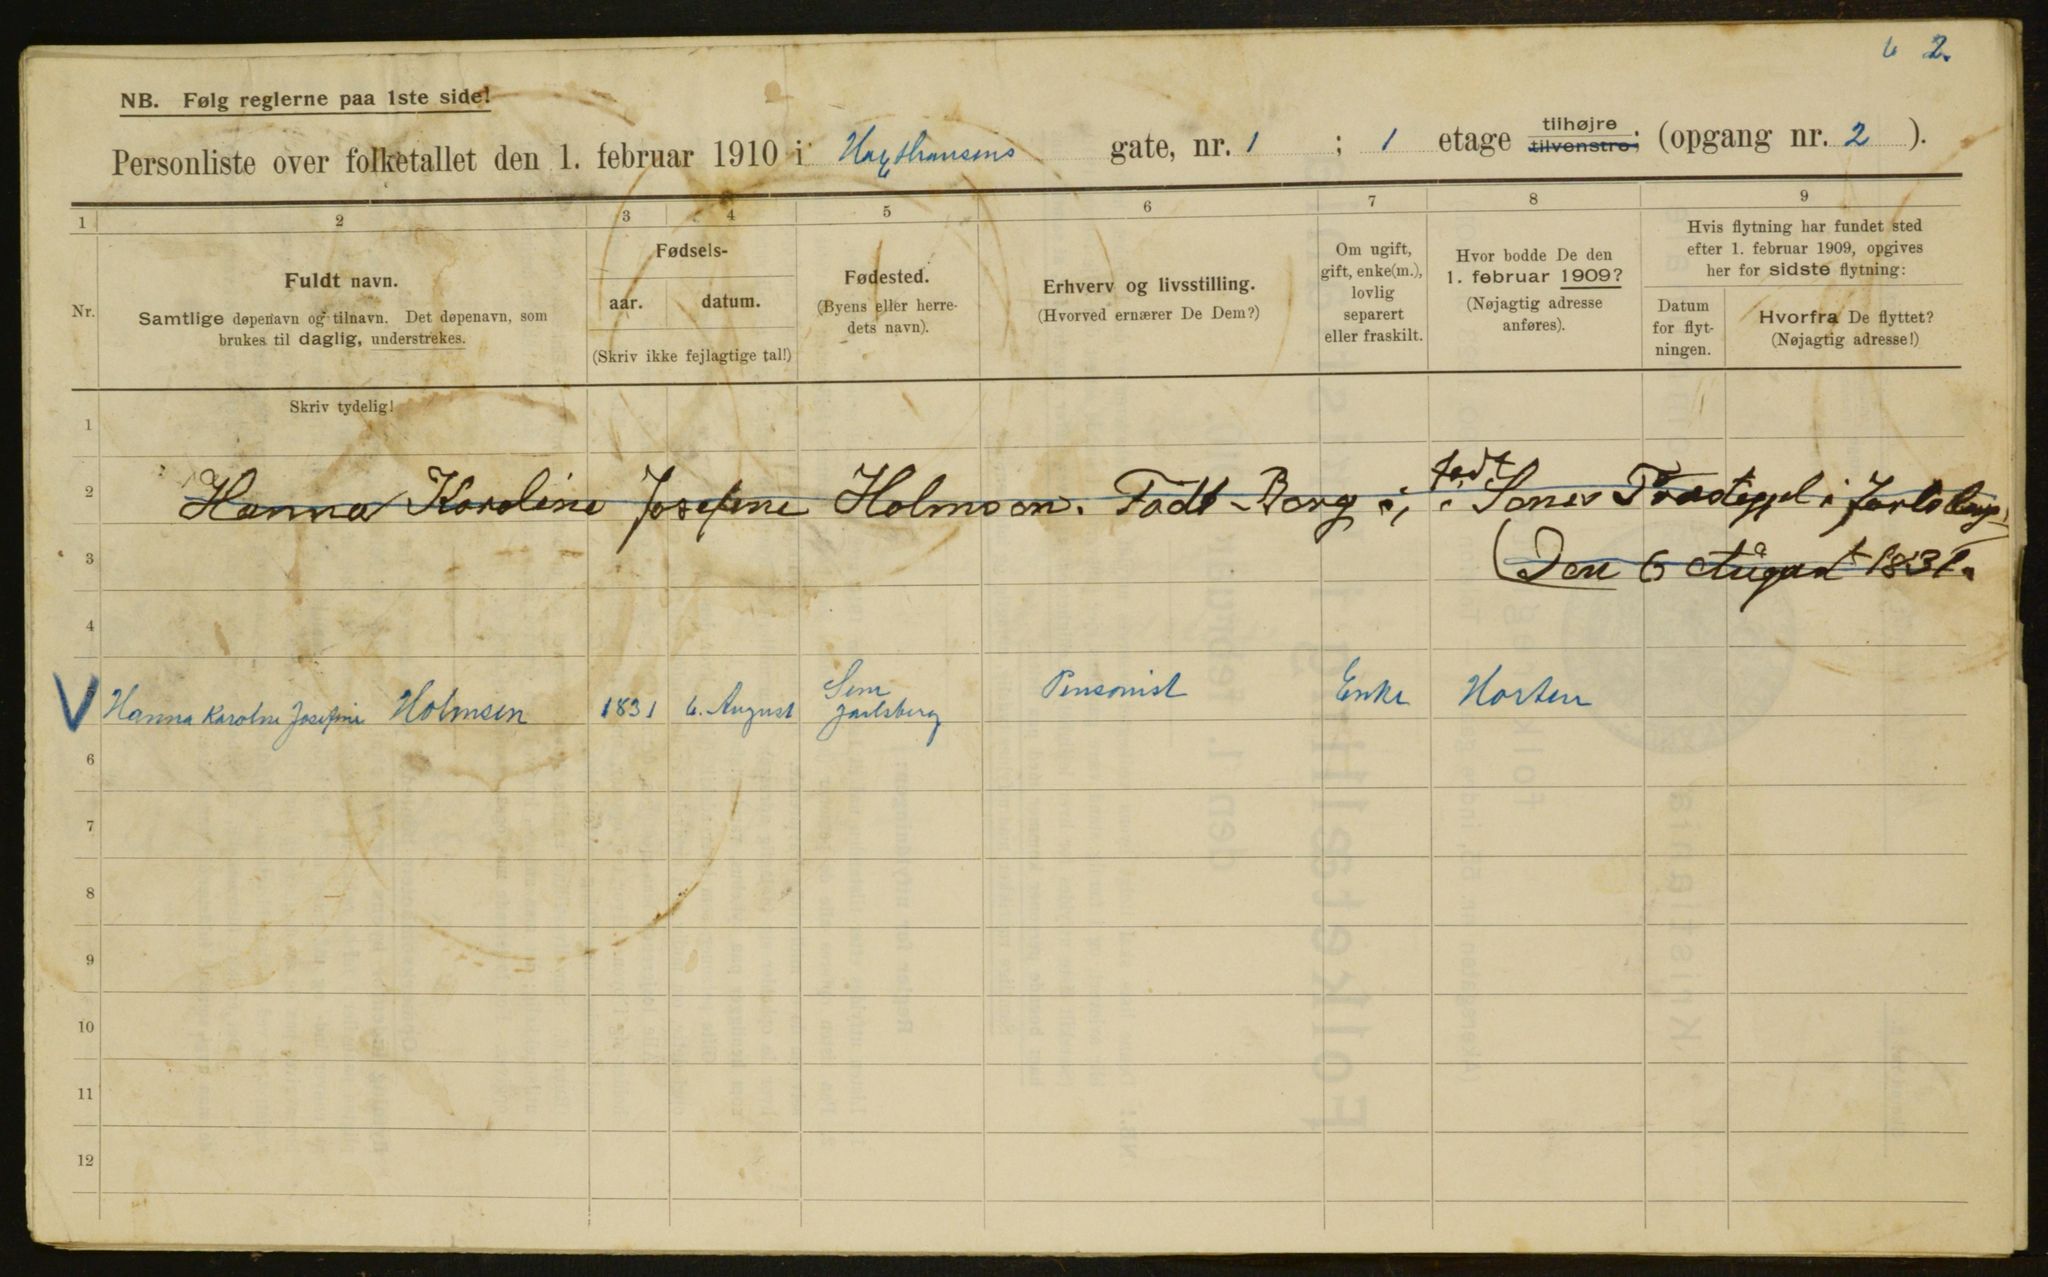 6 2.
NB. Følg reglerne paa 1ste side!
Personliste over folketallet den 1. februar 1910 i Hax thransens gate, nr. 1 ; 1 etage tilhøjre tilvenstre; (opgang nr. 2 ).
1 2 3 4 5 6 7 8 9
Nr.
Fuldt navn.
Samtlige døpenavn og tilnavn. Det døpenavn, som
brukes til daglig, understrekes.
Fødsels-
aar. datum.
(Skriv ikke fejlagtige tal!)
Fødested.
(Byens eller herre-
dets navn).
Erhverv og livsstilling.
(Hvorved ernærer De Dem?)
Om ugift,
gift, enke(m.),
lovlig
separert
eller fraskilt.
Hvor bodde De den
1. februar 1909?
(Nøjagtig adresse
anføres).
Hvis flytning har fundet sted
efter 1. februar 1909, opgives
her for sidste flytning:
Datum
for flyt-
ningen.
Hvorfra De flyttet?
(Nøjagtig adresse!)
Skriv tydelig!
1
2 Hanna Karoline Josefine Holmsen. Född Berg i; född i Jarlsberg
3 Den 6 August 1831.
4
V 5 Hanna Karoline Josefine Holmsen 1831 6. August Sem Jarlsberg Pensonist Enke Horten
6
7
8
9
10
11
12